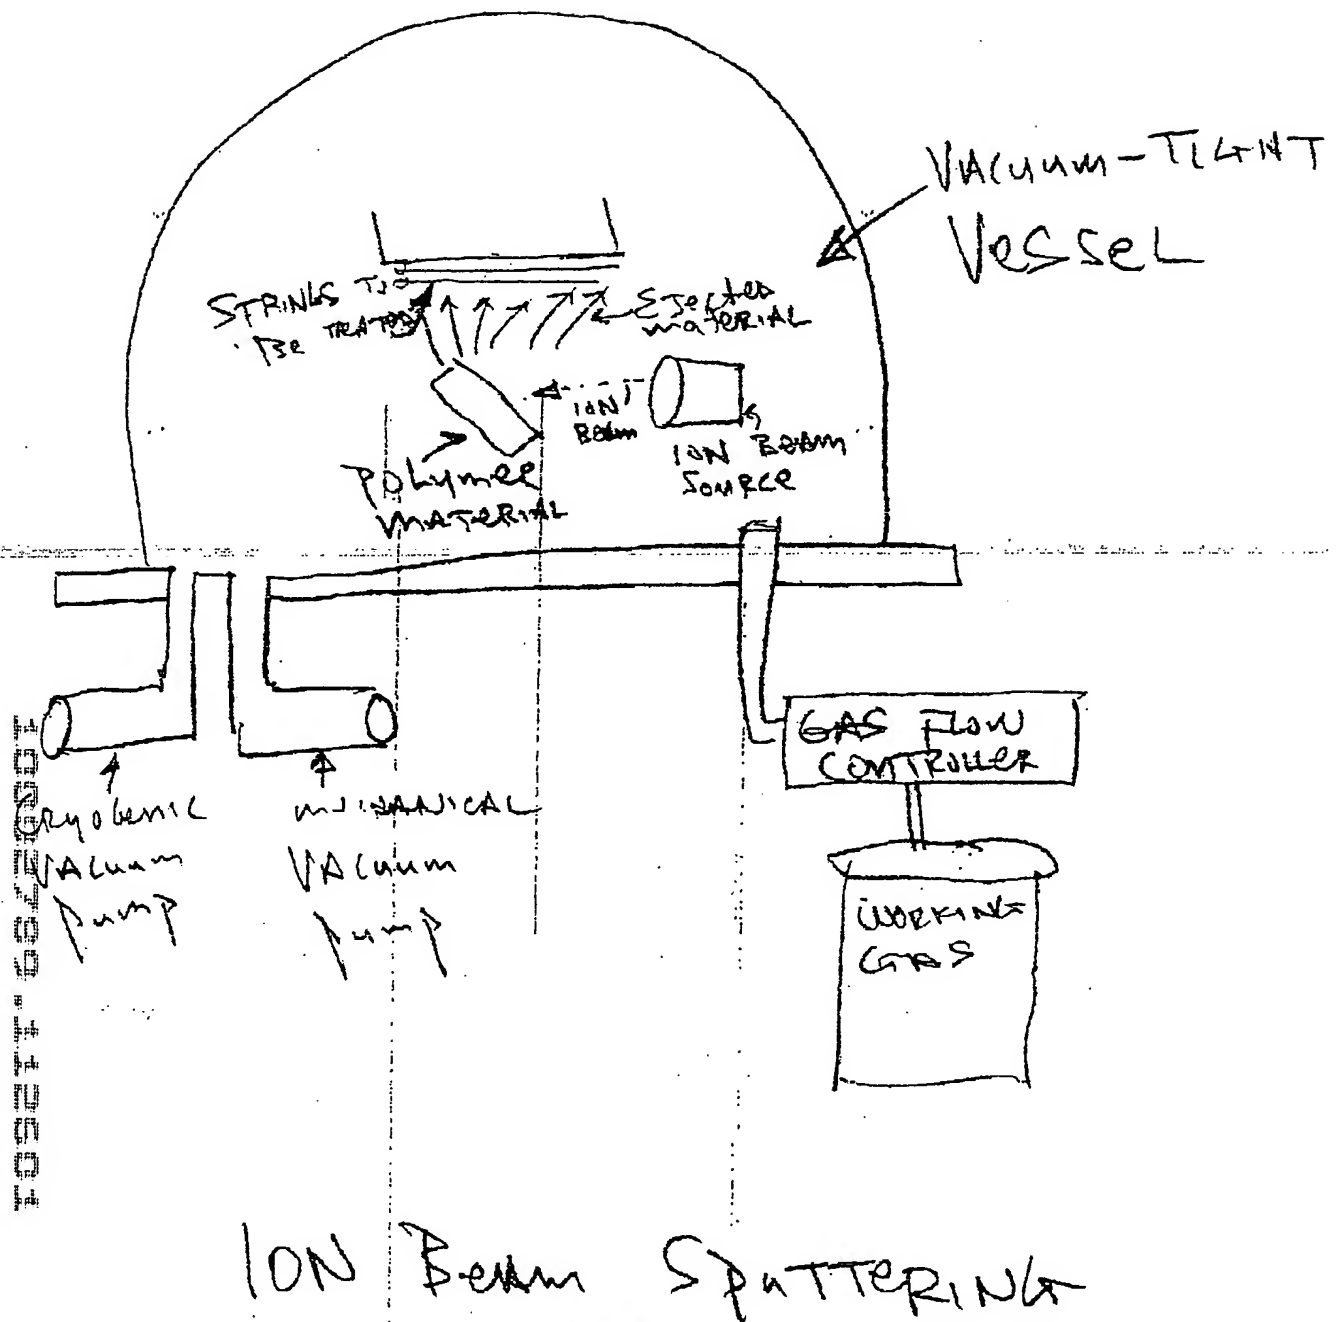 VACUUM-TIGHT
VesseL
STRINGS TO
Be TREATED
EJected
mATERIAL
ION
BEAM
ION BEAM
SOURCe
POLymeR
MATeRIAL
GAS FLOW
CONTROLLER
CRYOGENIC
VACuum
pump
VACuum
pump
WORKING
GAS
ION BeAm SpuTTeRING